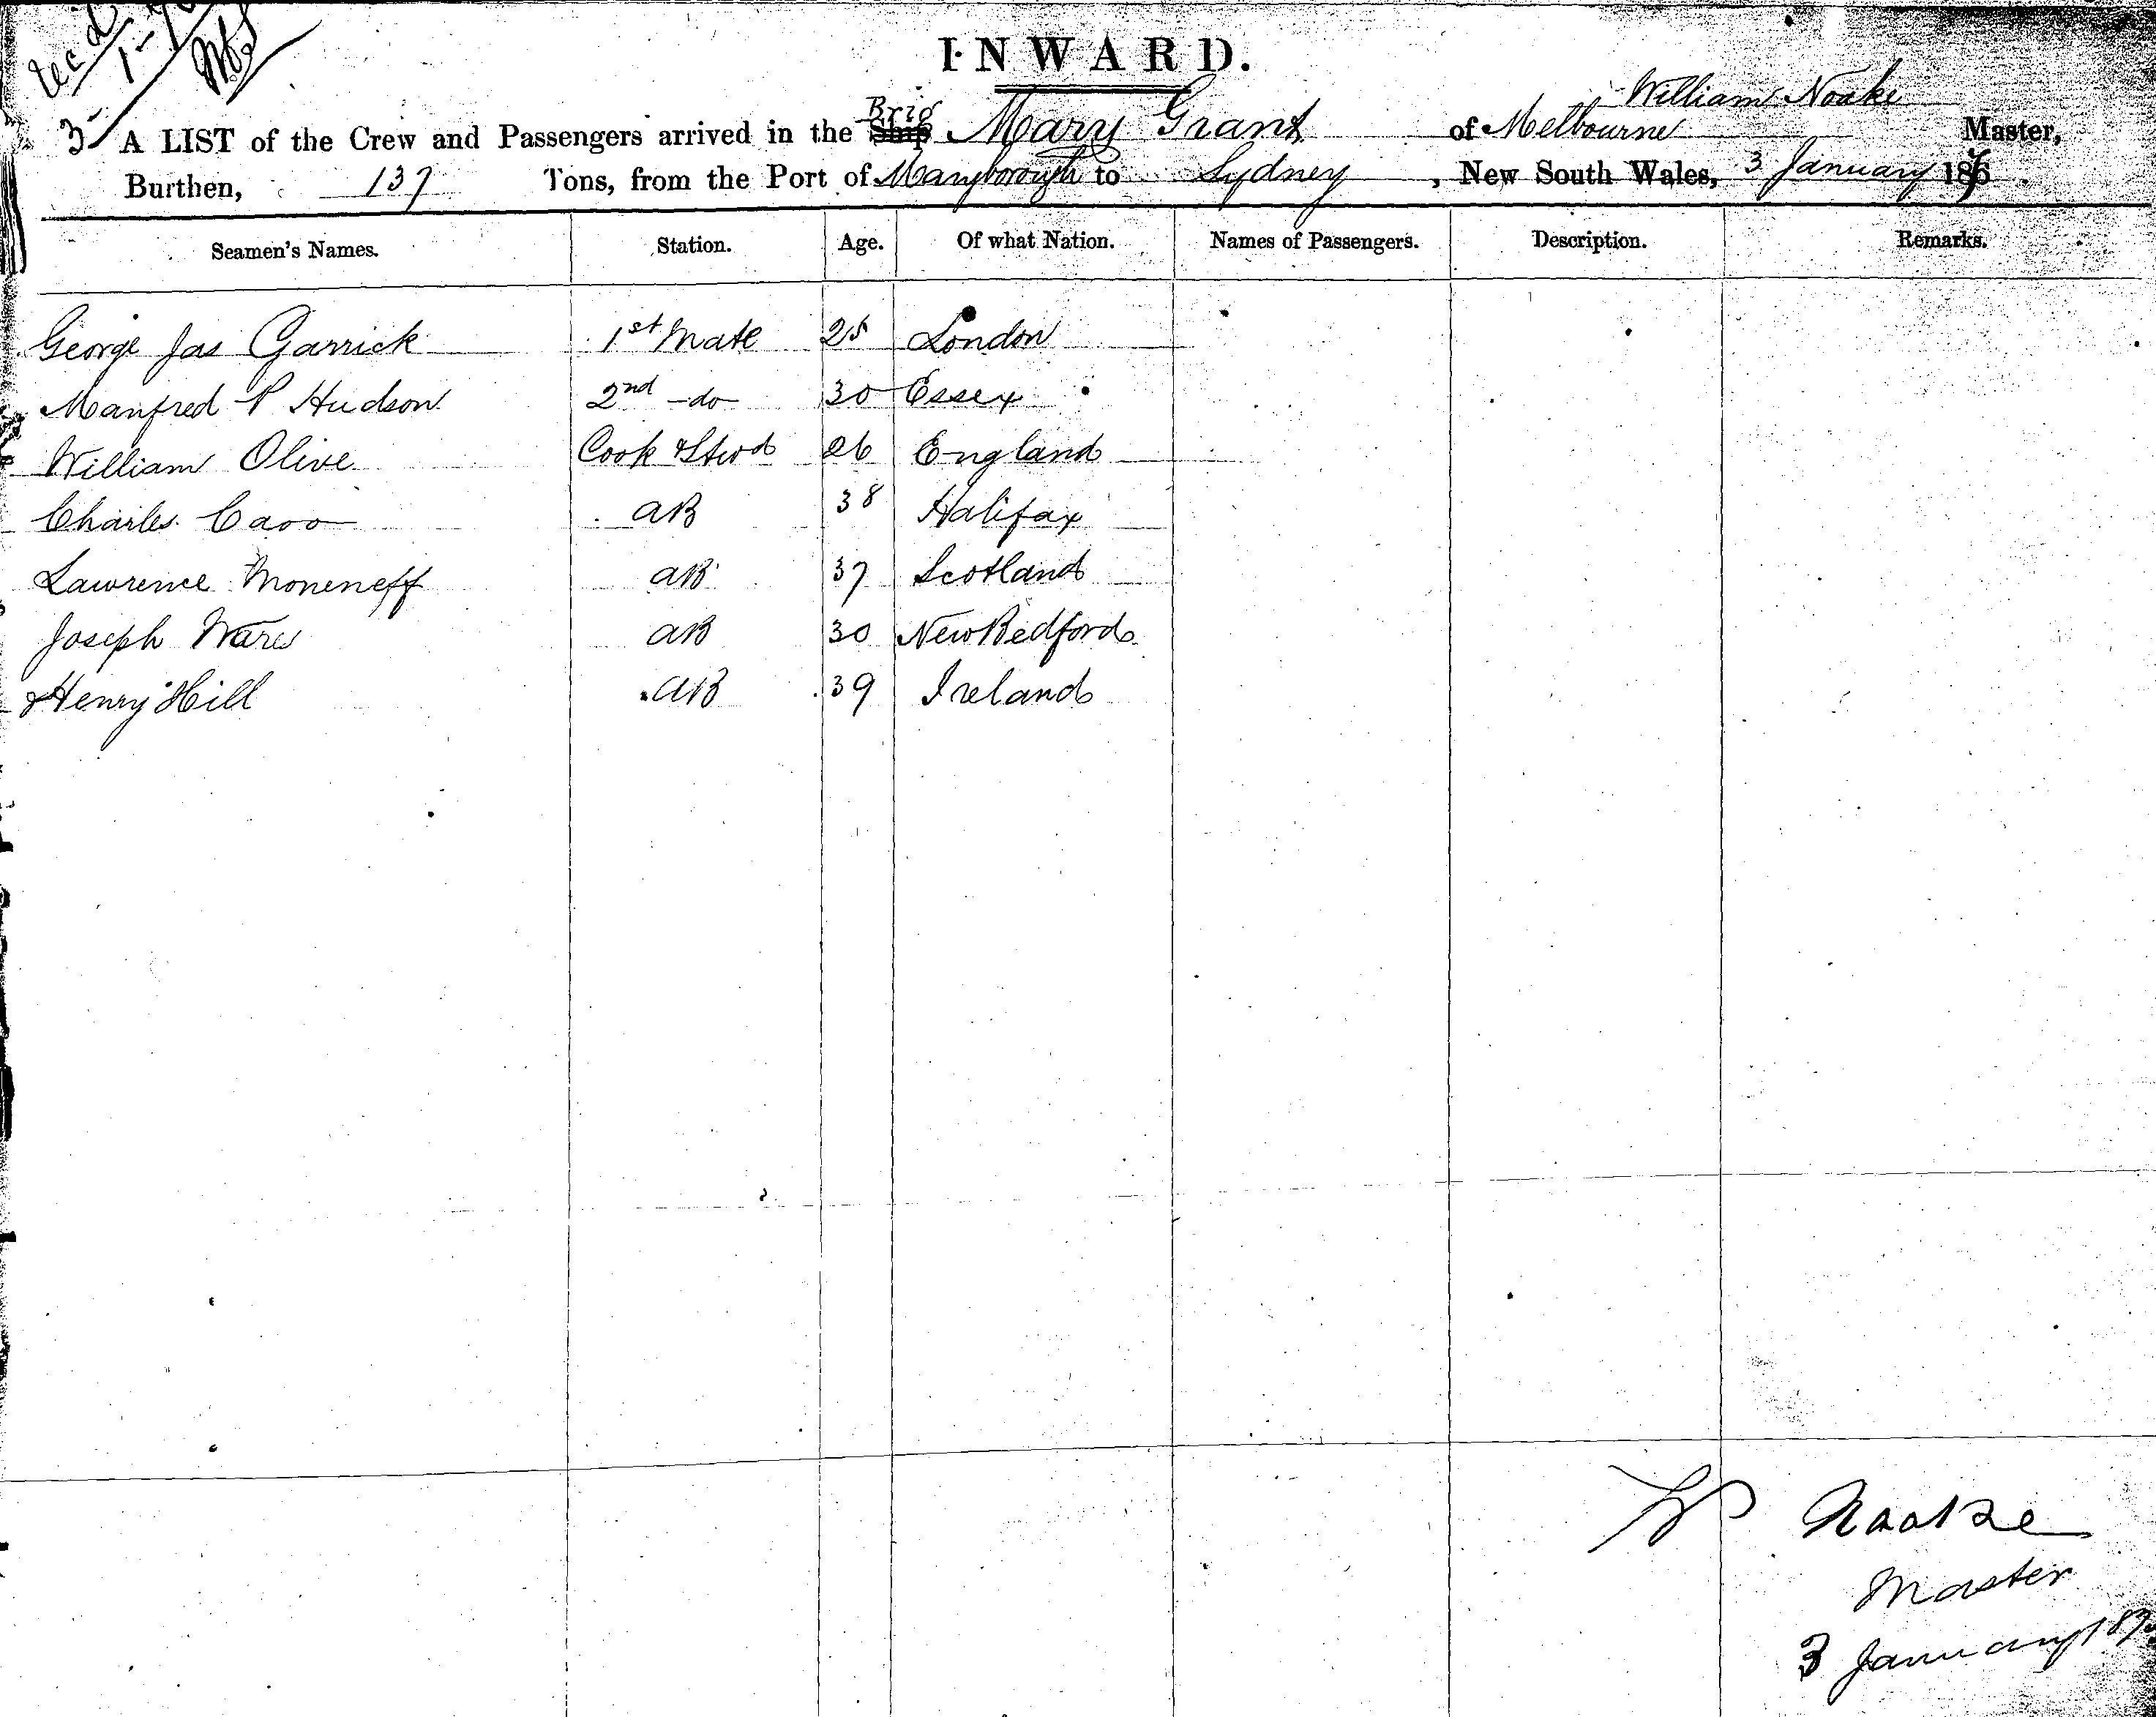 Recd
INWARD.
William Noake
3 A LIST of the Crew and Passengers arrived in the Ship Brig Mary Grant of Melbourne Master,
Burthen, 137 Tons, from the Port of Maryborough to Sydney, New South Wales, 3 January 187
Seamen's Names. Station. Age. Of what Nation. Names of Passengers. Description. Remarks.
George Jas Garrick 1st Mate 25 London
Manfred P Hudson 2nd -do- 30 Essex
William Olive Cook & Stwd 26 England
Charles AB 38 Halifax
Lawrence Moneneff AB 37 Scotland
Joseph Ware AB 30 New Bedford
& Henry Hill AB 39 Ireland
W Noake
Master
3 January 187